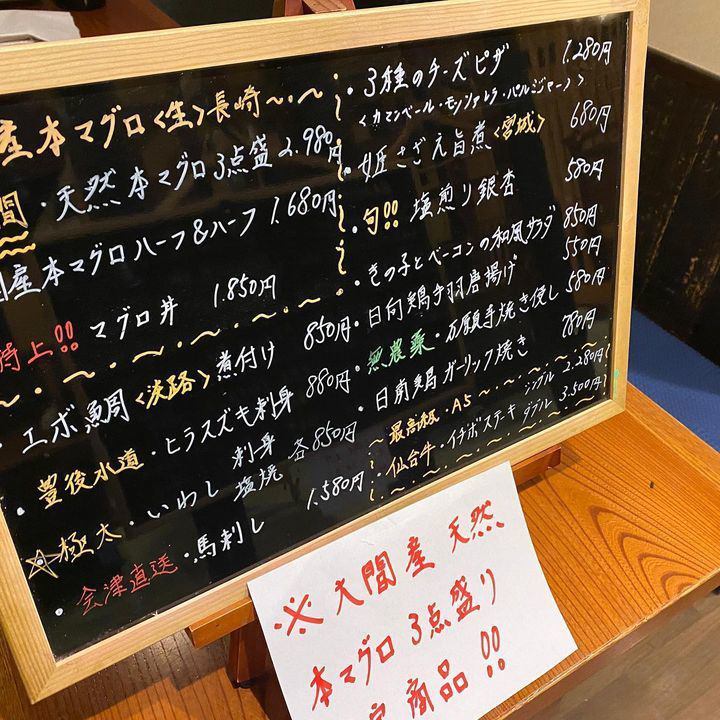 産本マグロ〈生〉長崎
間・天然本マグロ3点盛 2.980円
産本マグロハーフ&ハーフ 1.680円
特上!! マグロ丼 1.850円
・エボ鯛〈淡路〉煮付け 850円
・豊後水道・ヒラスズキ刺身 880円
極太・いわし 刺身 塩焼 各850円
・会津直送・馬刺し 1.580円
・3種のチーズピザ 1.280円
〈カマンベール・モッツァレラ・パルジャーノ〉
・姫さざえ旨煮〈宮城〉 680円
・旬!! 塩煎り銀杏 580円
・きの子とベーコンの和風サラダ 850円
・日向鶏手羽唐揚げ 550円
・無農薬・万願寺焼き浸し 580円
・日南鶏ガーリック焼き 780円
最高級・A5
仙台牛・イチボステーキ シングル 2.280円
ダブル 3.500円
※大間産天然
本マグロ3点盛り
商品!!